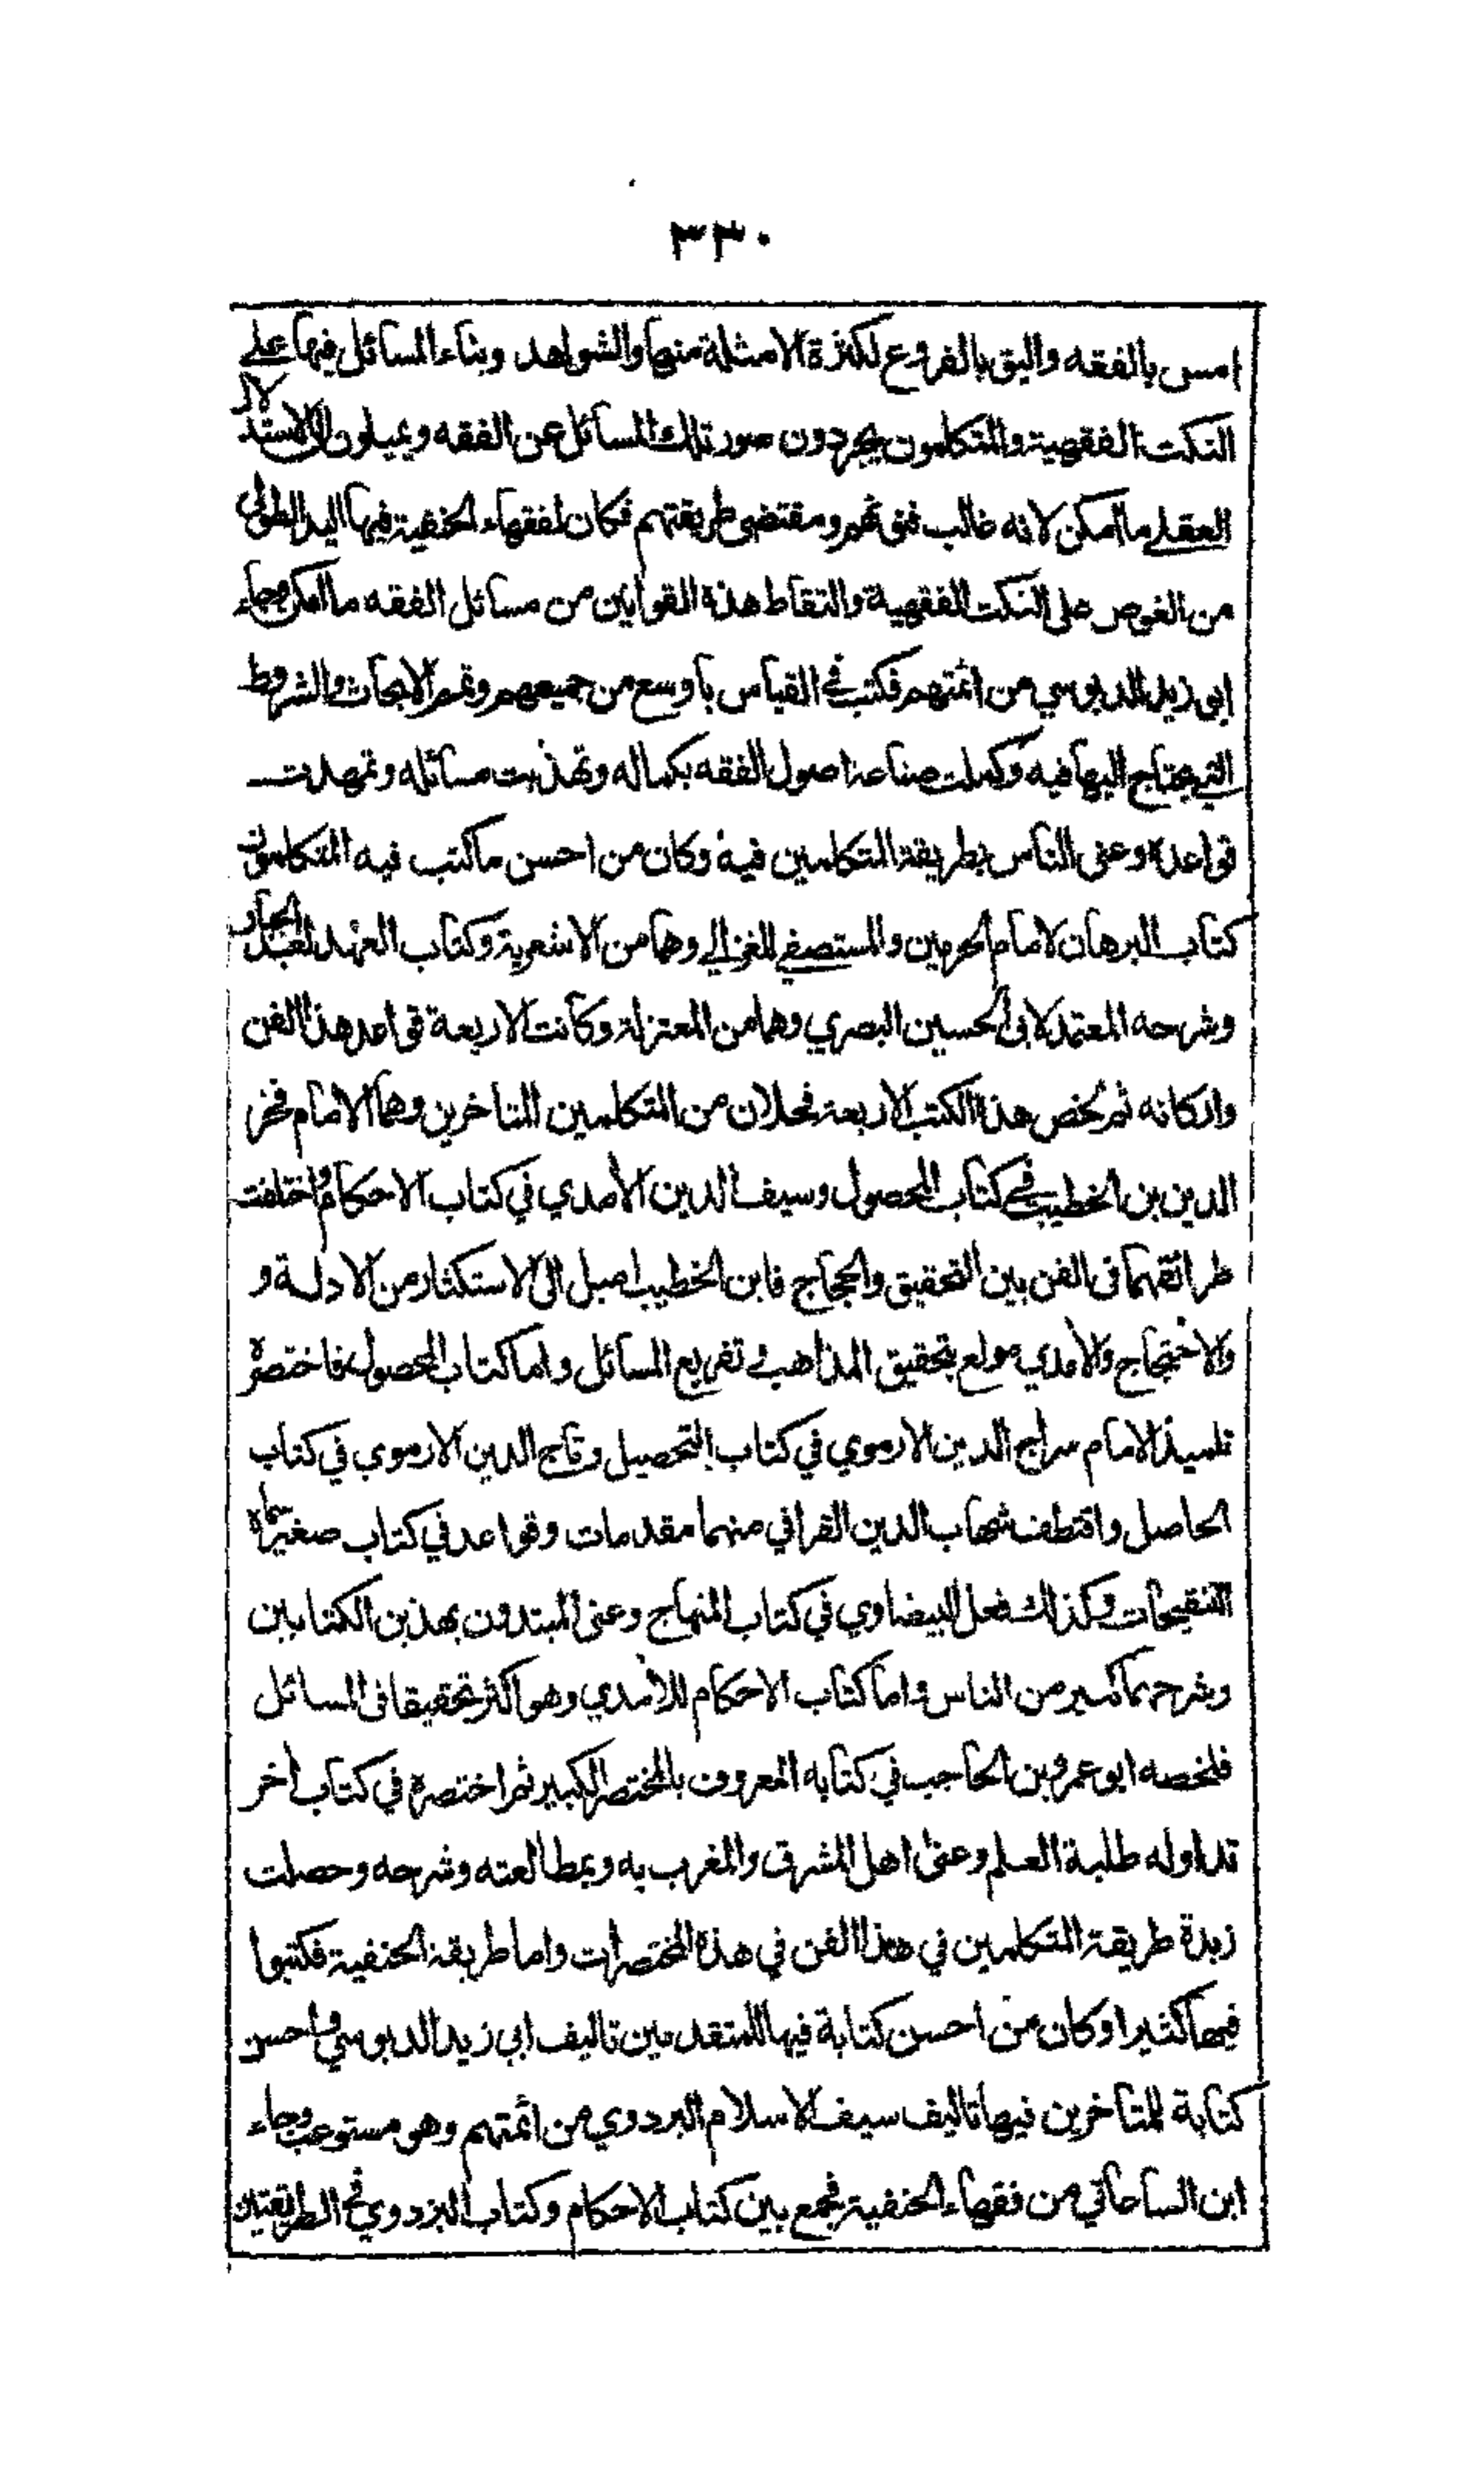 ٣٣٠
امس بالفقه واليق بالفروع لكثرة الامثلة منها والشواهد وبناء المسائل فيها على
النكت الفقهية والمتكلمون يجردون صور تلك المسائل عن الفقه ويميلون الى الاستدلال
العقلي ما امكن لانه غالب فنونهم ومقتضى طريقتهم فكان لفقهاء الحنفية فيها اليد الطولى
من الغوص على النكت الفقهية والتقاط هذه القوانين من مسائل الفقه ما امكن وجاء
ابو زيد الدبوسي من ائمتهم فكتب في القياس باوسع من جميعهم وتمم الابحاث والشروط
التي يحتاج اليها فيه وكملت صناعة اصول الفقه بكماله وتهذبت مسائله وتمهدت
قواعده وعنى الناس بطريقة المتكلمين فيه وكان من احسن ما كتب فيه المتكلمون
كتاب البرهان لامام الحرمين والمستصفى للغزالي وهما من الاشعرية وكتاب العهد لعبد الجبار
وشرحه المعتمد لابى الحسين البصري وهما من المعتزلة وكانت الاربعة قواعد هذا الفن
واركانه ثم لخص هذه الكتب الاربعة فحلان من المتكلمين المتاخرين وهما الامام فخر
الدين بن الخطيب في كتاب المحصول وسيف الدين الأمدي في كتاب الاحكام واختلفت
طرائقهما فى الفن بين التحقيق والحجاج فابن الخطيب اميل الى الاستكثار من الادلة و
والاحتجاج والأمدي مولع بتحقيق المذاهب و تفريع المسائل واما كتاب المحصول فاختصره
تلميذ الامام سراج الدين الارموي في كتاب التحصيل وتاج الدين الارموي في كتاب
الحاصل واقتطف شهاب الدين القرافي منهما مقدمات وقواعد في كتاب صغير سماه
التنقيحات وكذلك فعل البيضاوي في كتاب المنهاج وعنى المبتدون بهذين الكتابين
وشرحهما كثير من الناس واما كتاب الاحكام للأمدي وهو اكثر تحقيقا فى المسائل
فلخصه ابو عمرو بن الحاجب في كتابه المعروف بالمختصر الكبير ثم اختصره في كتاب أخر
تداوله طلبة العلم وعنى اهل المشرق والمغرب به وبمطالعته وشرحه وحصلت
زبدة طريقة المتكلمين في هذا الفن في هذه المختصرات واما طريقة الحنفية فكتبوا
فيها كثيرا وكان من احسن كتابة فيها للمتقدمين تاليف ابي زيد الدبوسي واحسن
كتابة للمتأخرين فيها تاليف سيف الاسلام البزدوي من ائمتهم وهو مستوعب وجاء
ابن الساعاتي من فقهاء الحنفية فجمع بين كتاب الاحكام وكتاب البزدوي في الطريقتين